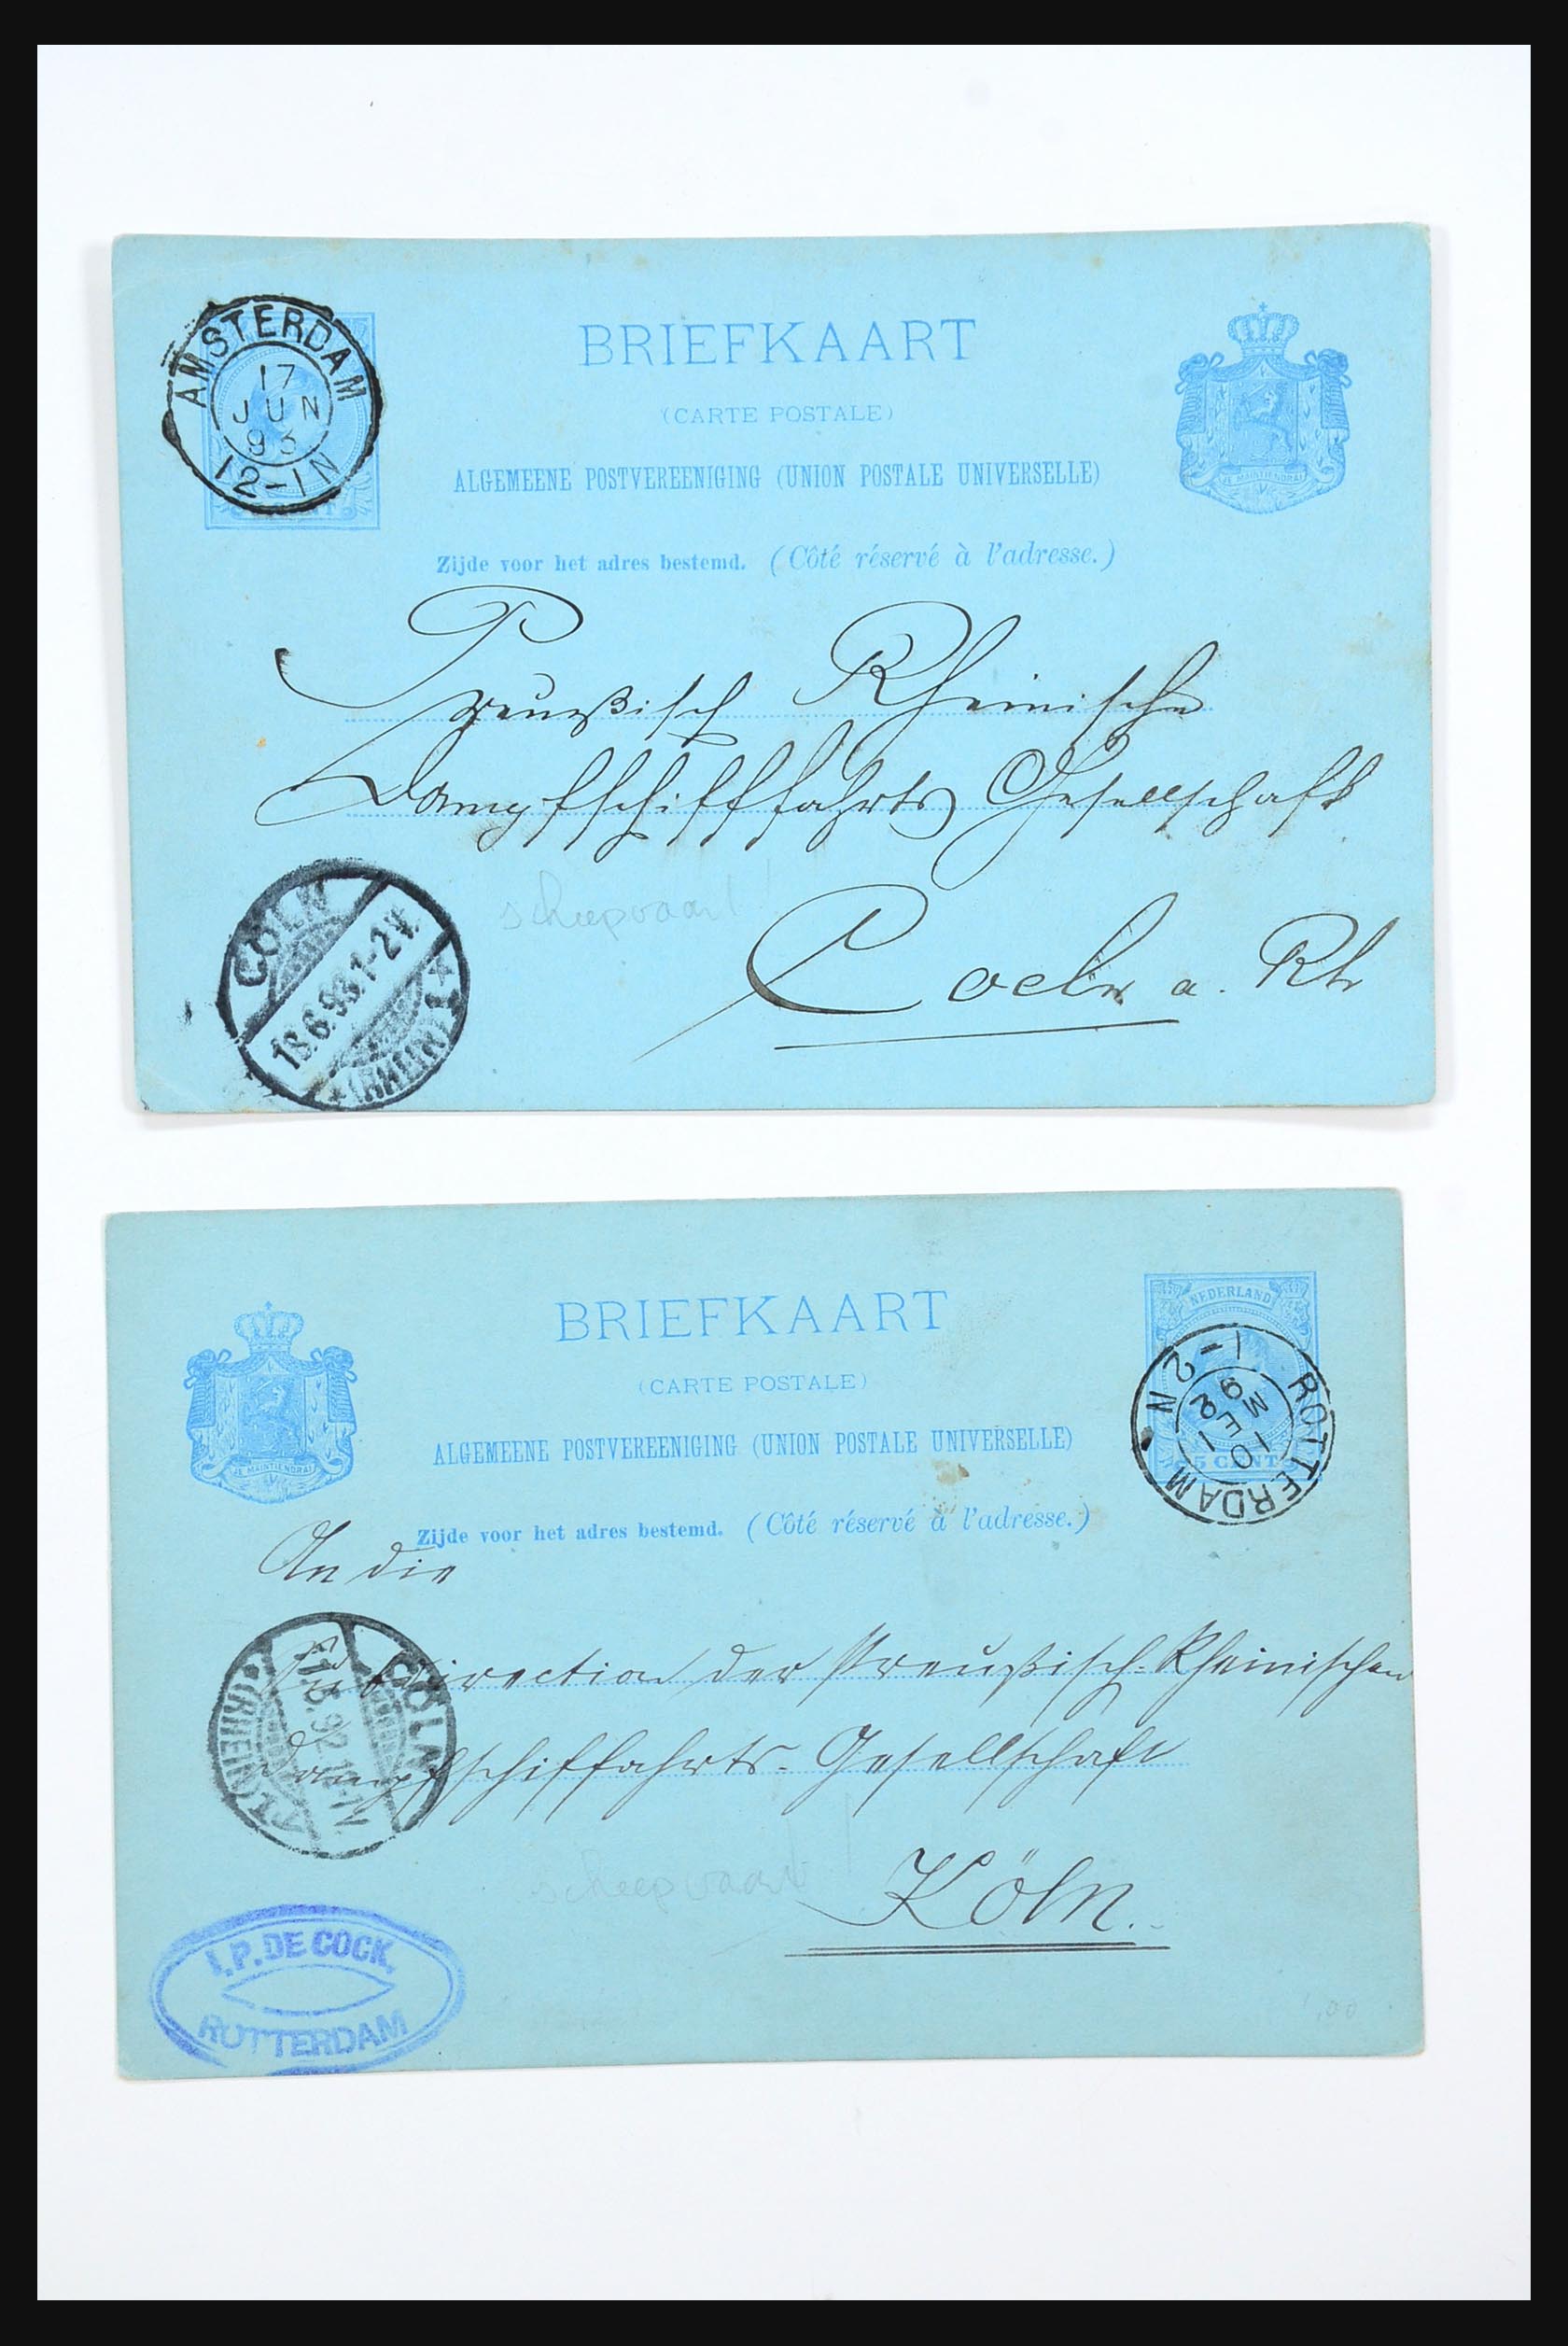 AMSTERDAM
17
JUN
93
12-1N
BRIEFKAART
(CARTE POSTALE)
ALGEMEENE POSTVEREENIGING (UNION POSTALE UNIVERSELLE)
JE MAINTIENDRAI
Zijde voor het adres bestemd. (Côté réservé à l'adresse.)
Preußisch Rheinische
Dampfschifffahrts Gesellschaft
scheepvaart!
Coeln a. Rh
CÖLN
18.6.93.1-2V.
* (RHEIN) 1 *
BRIEFKAART
(CARTE POSTALE)
ALGEMEENE POSTVEREENIGING (UNION POSTALE UNIVERSELLE)
JE MAINTIENDRAI
NEDERLAND
5 CENT
ROTTERDAM
10
MEI
92
1-2N
Zijde voor het adres bestemd. (Côté réservé à l'adresse.)
An die
direction der Preußisch-Rheinischen
Dampfschiffahrts-Gesellschaft
CÖLN
(RHEIN)
scheepvaart!
Köln.
I.P. DE COCK,
ROTTERDAM